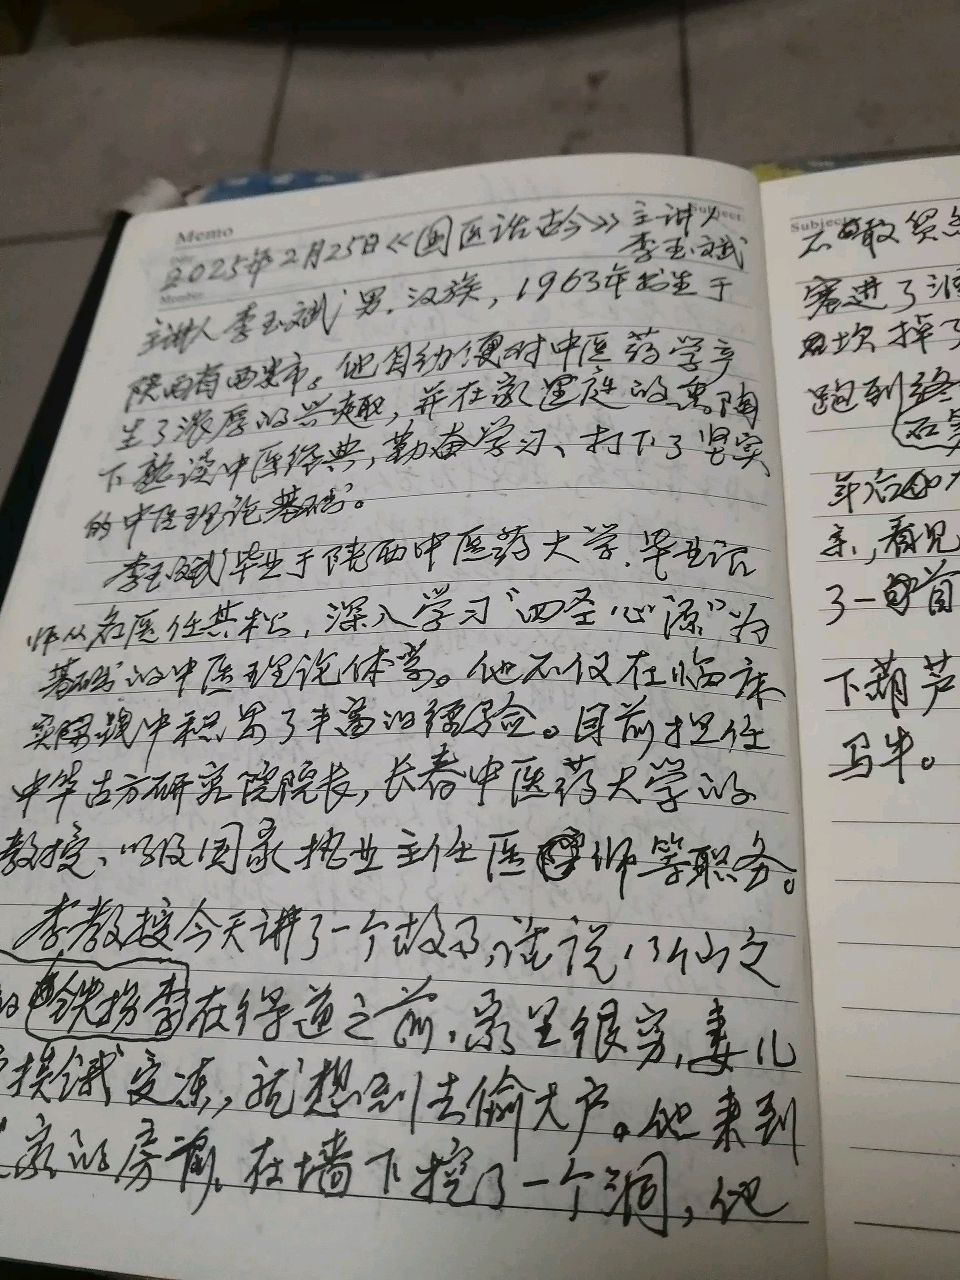 Memo
Subject:
2025年2月25日《国医话古今》主讲人
李玉斌
主讲人李玉斌男.汉族，1963年出生于
陕西省西安市。他自幼便对中医药学产
生了浓厚的兴趣，并在家庭的熏陶
下熟读中医经典，勤奋学习、打下了坚实
的中医理论基础。
李玉斌毕业于陕西中医药大学.毕业后
师从名医任其松，深入学习"四圣心源"为
基础的中医理论体系。他不仅在临床
实践中积累了丰富的经验。目前担任
中华古方研究院院长，长春中医药大学的
教授、以及国家执业主任医师等职务。
李教授今天讲了一个故事，话说八仙之
的铁拐李在得道之前，家里很穷，妻儿
挨饿受冻，就想到去偷大户。他来到
家的房前，在墙下挖了一个洞，他
Subject:
不敢贸
窜进了
坎掉了
跑到终
年后
亲，看见
了一首
下葫芦
马牛。